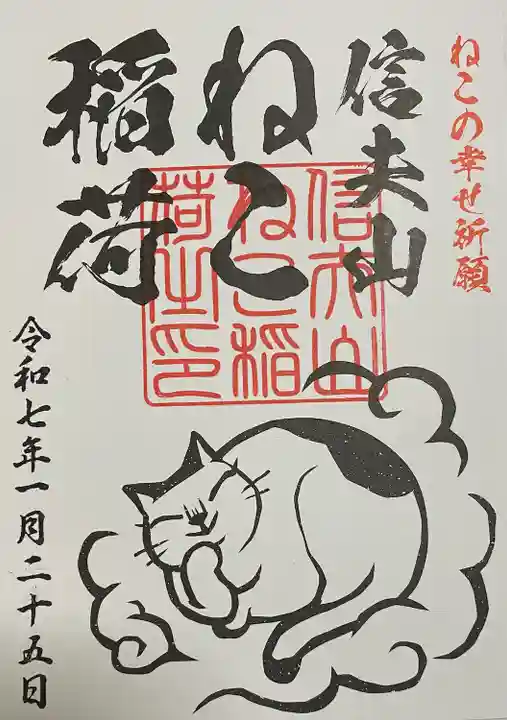 ねこの幸せ祈願
信夫山
ねこ
稲荷
信夫山
ねこ稲
荷之印
令和七年一月二十五日